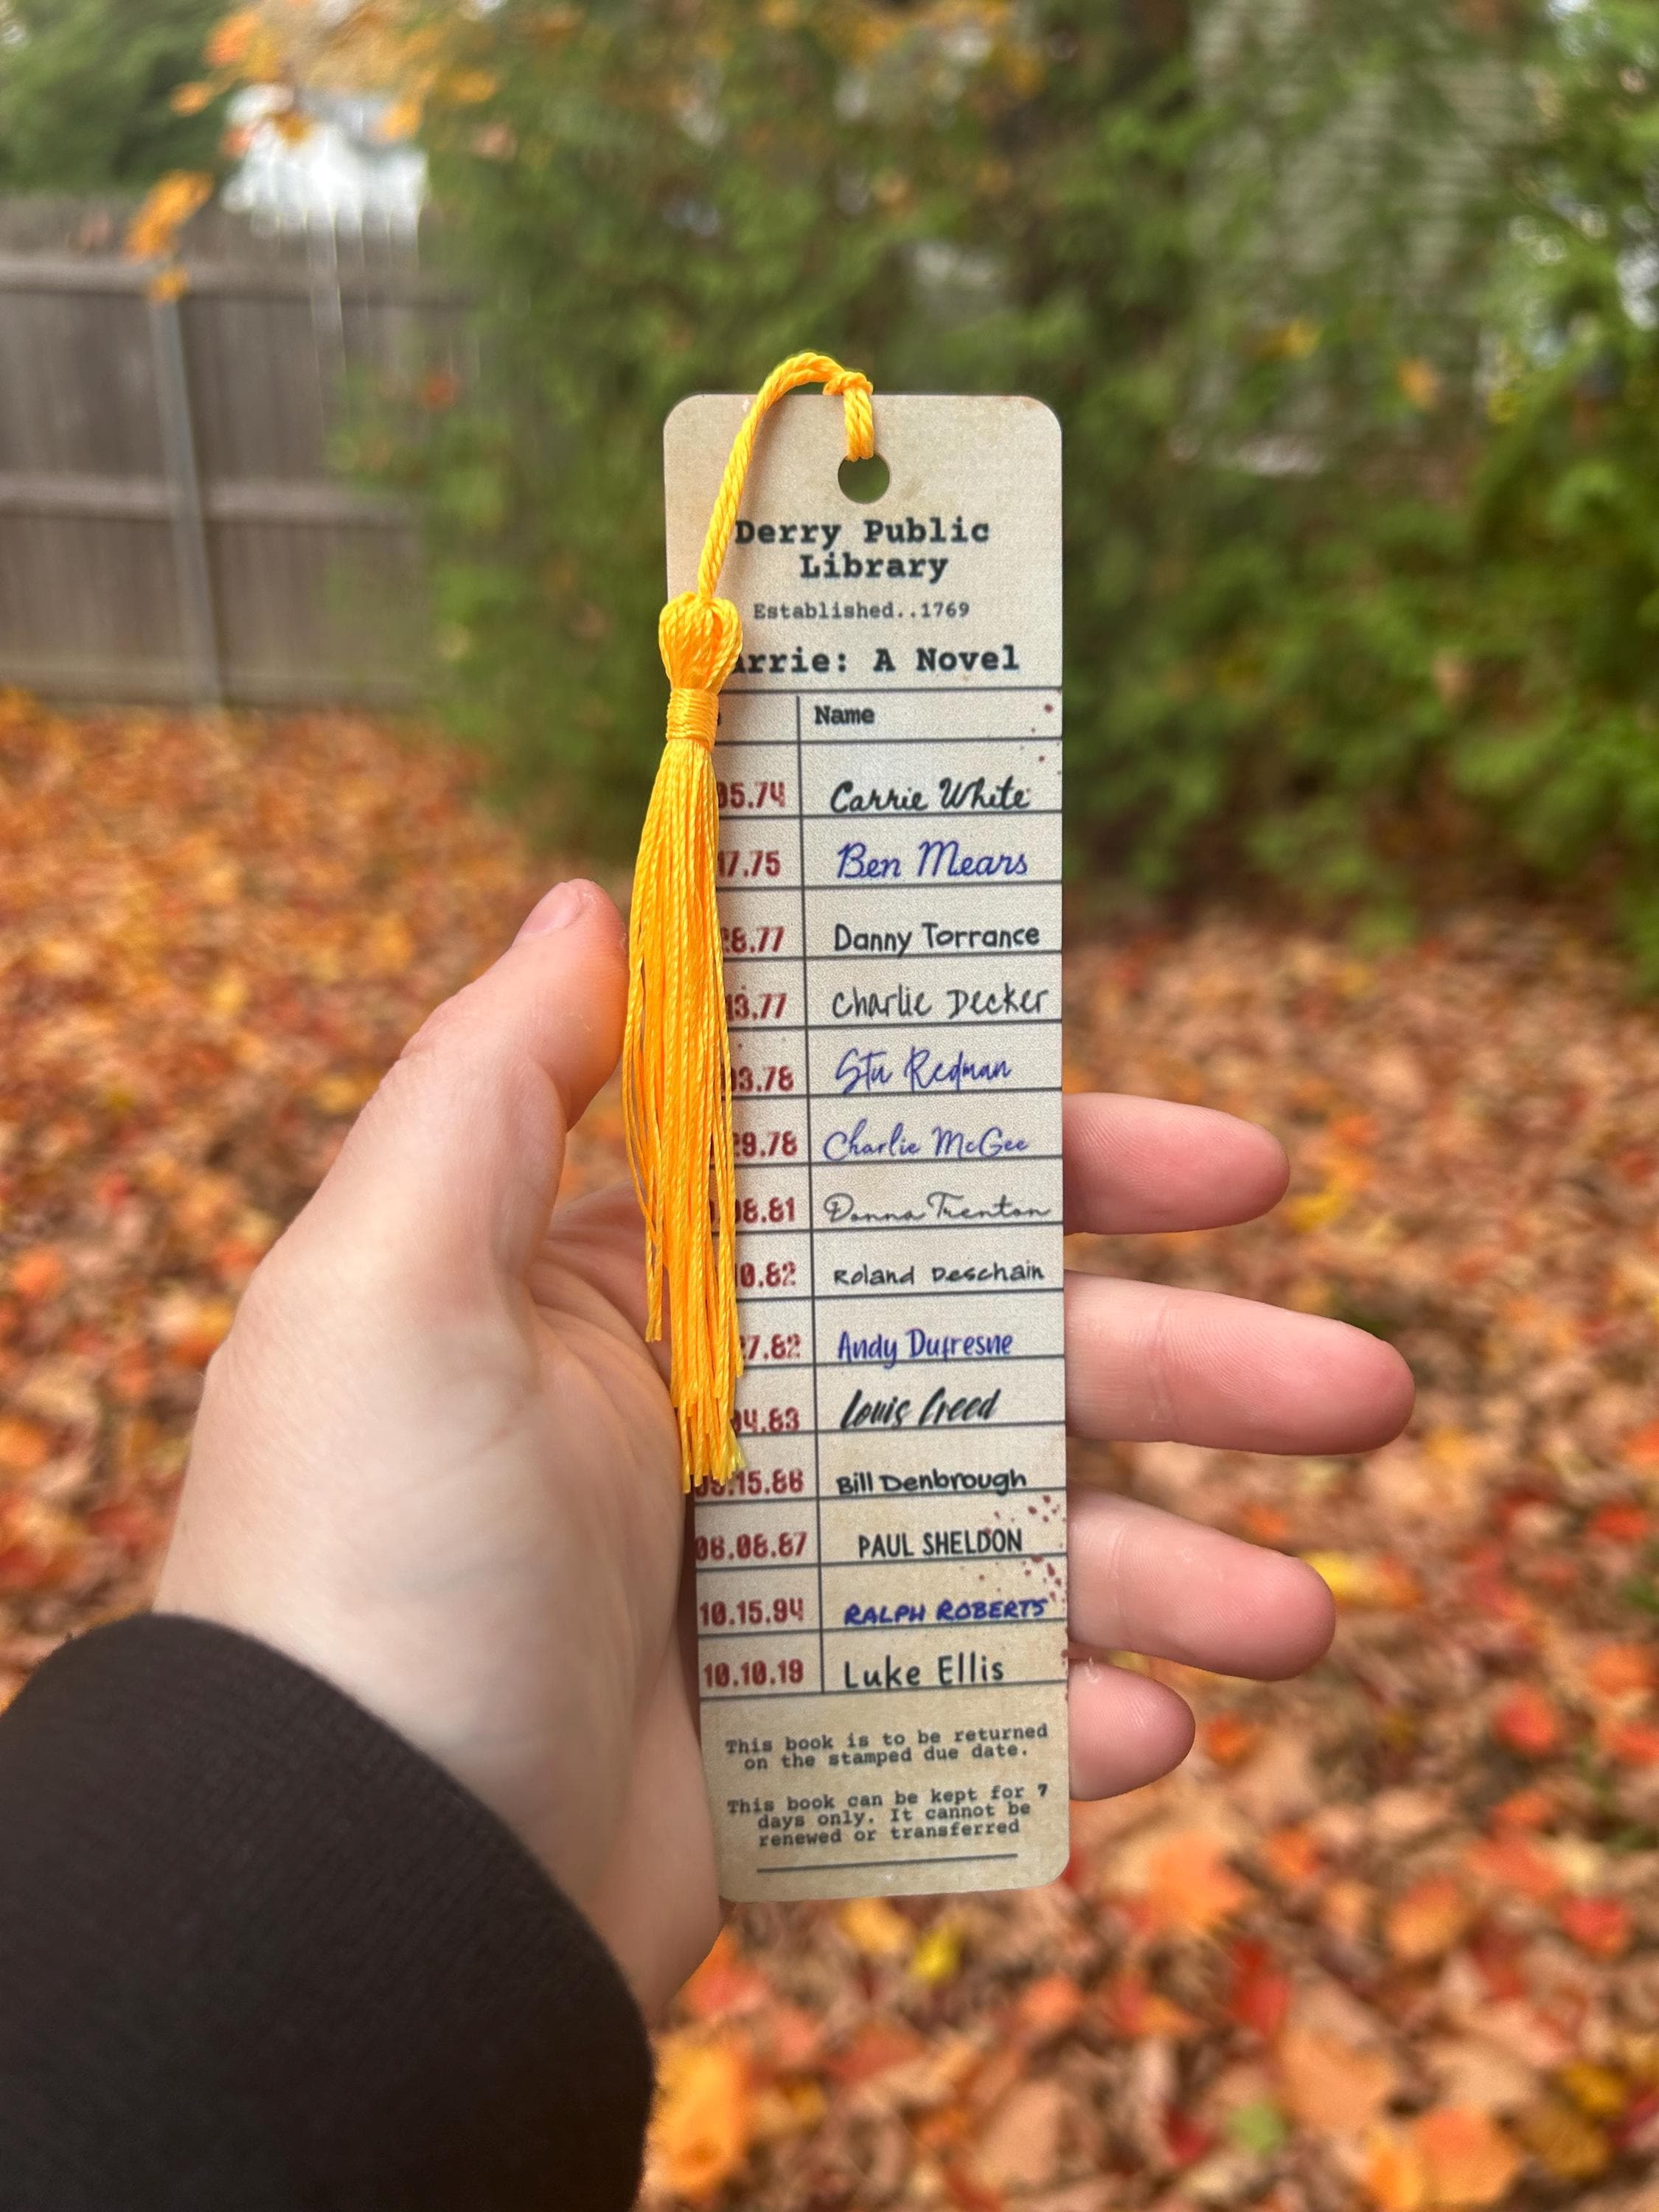 Derry Public
Library
Established..1769
arrie: A Novel
Name
05.74 Carrie White
17.75 Ben Mears
28.77 Danny Torrance
13.77 Charlie Decker
03.78 Stu Redman
29.78 Charlie McGee
08.81 Donna Trenton
10.82 Roland Deschain
27.82 Andy Dufresne
04.83 Louis Creed
09.15.86 Bill Denbrough
06.08.87 PAUL SHELDON
10.15.94 RALPH ROBERTS
10.10.19 Luke Ellis
This book is to be returned
on the stamped due date.
This book can be kept for 7
days only. It cannot be
renewed or transferred